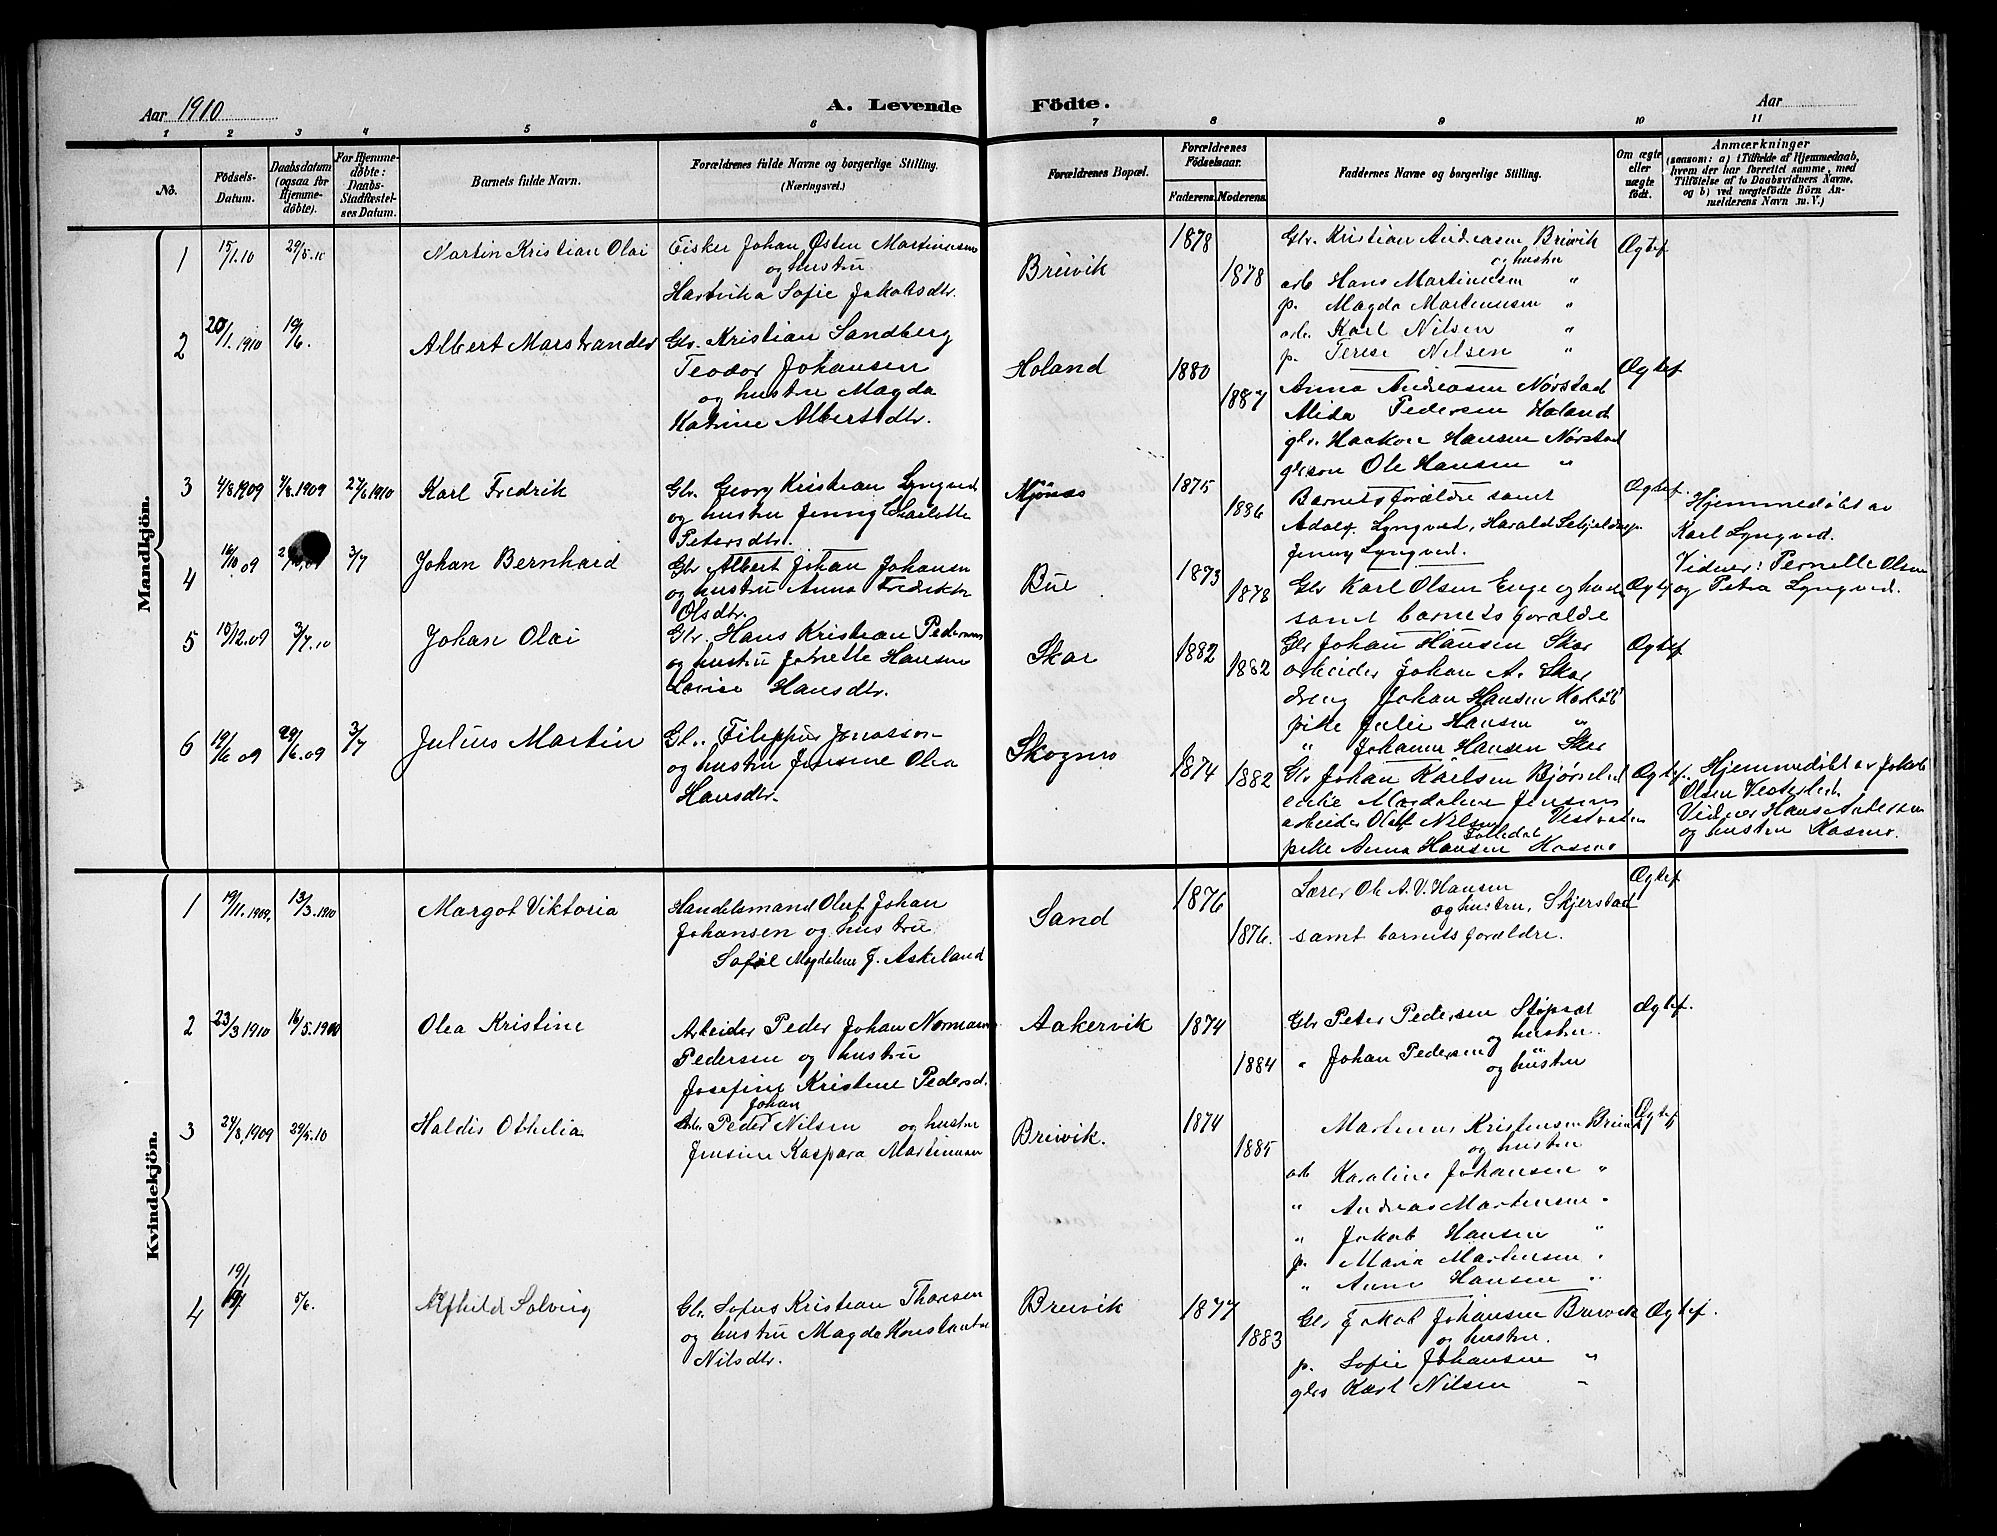 Aar 1910
A. Levende Födte.
Aar
1 2 3 4 5 6 7 8 9 10 11
No.
Födsels-Datum.
Daabsdatum (ogsaa for Hjemmedöbte).
For Hjemmedøbte: Daabs-Stadfæstelses Datum.
Barnets fulde Navn.
Forældrenes fulde Navne og borgerlige Stilling. (Næringsvei.)
Forældrenes Bopæl.
Forældrenes Födselsaar.
Faderens. Moderens.
Faddernes Navne og borgerlige Stilling.
Om ægte eller uægte födt.
Anmærkninger
(saasom: a) i Tilfælde af Hjemmedaab,
hvem der har forrettet samme, med
Tilföielse af to Daabsvidners Navne.
og b) ved uægtefödte Börn Anmelderens Navn m. V.)
Mandkjön.
1 15/1.10 29/5.10 Martin Kristian Olai
Fisker Johan Østen Martinussen
og hustru
Hartvika Sofie Jakobsdtr.
Breivik
1878
1878
Gbr. Kristian Andreasen Breivik
og hustru
arb Hans Martinussen "
p. Magda Martinussen "
arb. Karl Nilsen "
p. Terese Nilsen "
Ægtef
2 20/1.1910 19/6. Albert Marstrander
Gbr. Kristian Sandberg
Teodor Johansen
og hustru Magda
Katrine Albertsdtr.
Holand
1880
1887
Anna Andreasen Nørstad
Alida Pedersen Holand
gbr. Haakon Hansen Nørstad
gbrson Ole Hansen "
Ægtef
3 4/8.1909 7/8.1909 27/6 1910 Karl Fredrik
Gbr. Georg Kristian Lyngved
og hustru Jenny Charlotte
Petersdtr.
Mjønes
1875
1886
Barnets forældre samt
Adolf Lyngved, Harald
Jenny Lyngved.
Ægtef.
Hjemmedøbt av
Karl Lyngved.
Vidner: Pernelle Olsen
og Petra Lyngved.
4 16/10 09 3/7 Johan Bernhard
Gbr Albert Johan Johansen
og hustru Anna Fredrikke
Olsdtr.
Bue
1873
1878
Gbr Karl Olsen Enge og hustru
samt barnets forælde
Ægtef
5 10/12.09 3/7.10 Johan Olai
Gbr. Hans Kristian Pedersen
og hustru Jonette Hansen
Lovise Hansdtr.
Skar
1882
1882
Gbr Johan Hansen Skar
arbeider Johan A. Skar
dreng Johan Hansen
pike Julie Hansen "
" Johanne Hansen Skar
Ægtef
6 12/6 09 29/6.09 3/7 Julius Martin
Gbr. Filippus Jonasson
og hustru Jensine Olea
Hansdtr.
Skognes
1874
1882
Gbr Johan Karlsen
enke Magdalene Jensen
arbeider Olaf Nilsen Vestvatn
Tolledal
pike Anna Hansen Kosmo
Ægtef.
Hjemmedøbt av Jakob
Olsen Vesterli
Vidner Hans Andersen
og hustru Kosmo.
Kvindekjön.
1 19/11.1909. 13/3.1910 Margot Viktoria
Handelsmand Olert Johan
Johansen og hustru
Sofie Magdalene J. Askeland
Sand
1876
1876.
Lærer Ole A. V. Hansen
og hustru, Skjerstad
samt barnets forældre.
Ægtef
2 23/3 1910 16/5.1910 Olea Kristine
Arbeider Peder Johan Normann
Pedersen og hustru
Josefine Kristine Pedersd.
Aakervik
1874
1884
Gbr Peter Pedersen Støpset
og hustru.
" Johan Pedersen "
og hustru
Ægtef.
3 24/8.1909 29/5.10 Haldis Othelia
Johan
Gbr. Peder Nilsen og hustru
Jensine Kaspara Martinsen
Breivik.
1874
1885
Martinus Kristensen Breivik
og hustru
arb Karoline Johansen "
" Andreas Martensen "
" Jakob Hansen "
p. Maria Martensen "
" Anna Hansen "
Ægtef
4 19/1 5/6. Alfhild Solveig
Gbr. Sofus Kristian Thoresen
og hustru Magda Konstanse
Nilsdtr.
Breivik
1877
1883
Gbr Jakob Johansen Breivik
og hustru.
p. Sofie Johansen "
gbrs Karl Nilsen "
Ægtef.